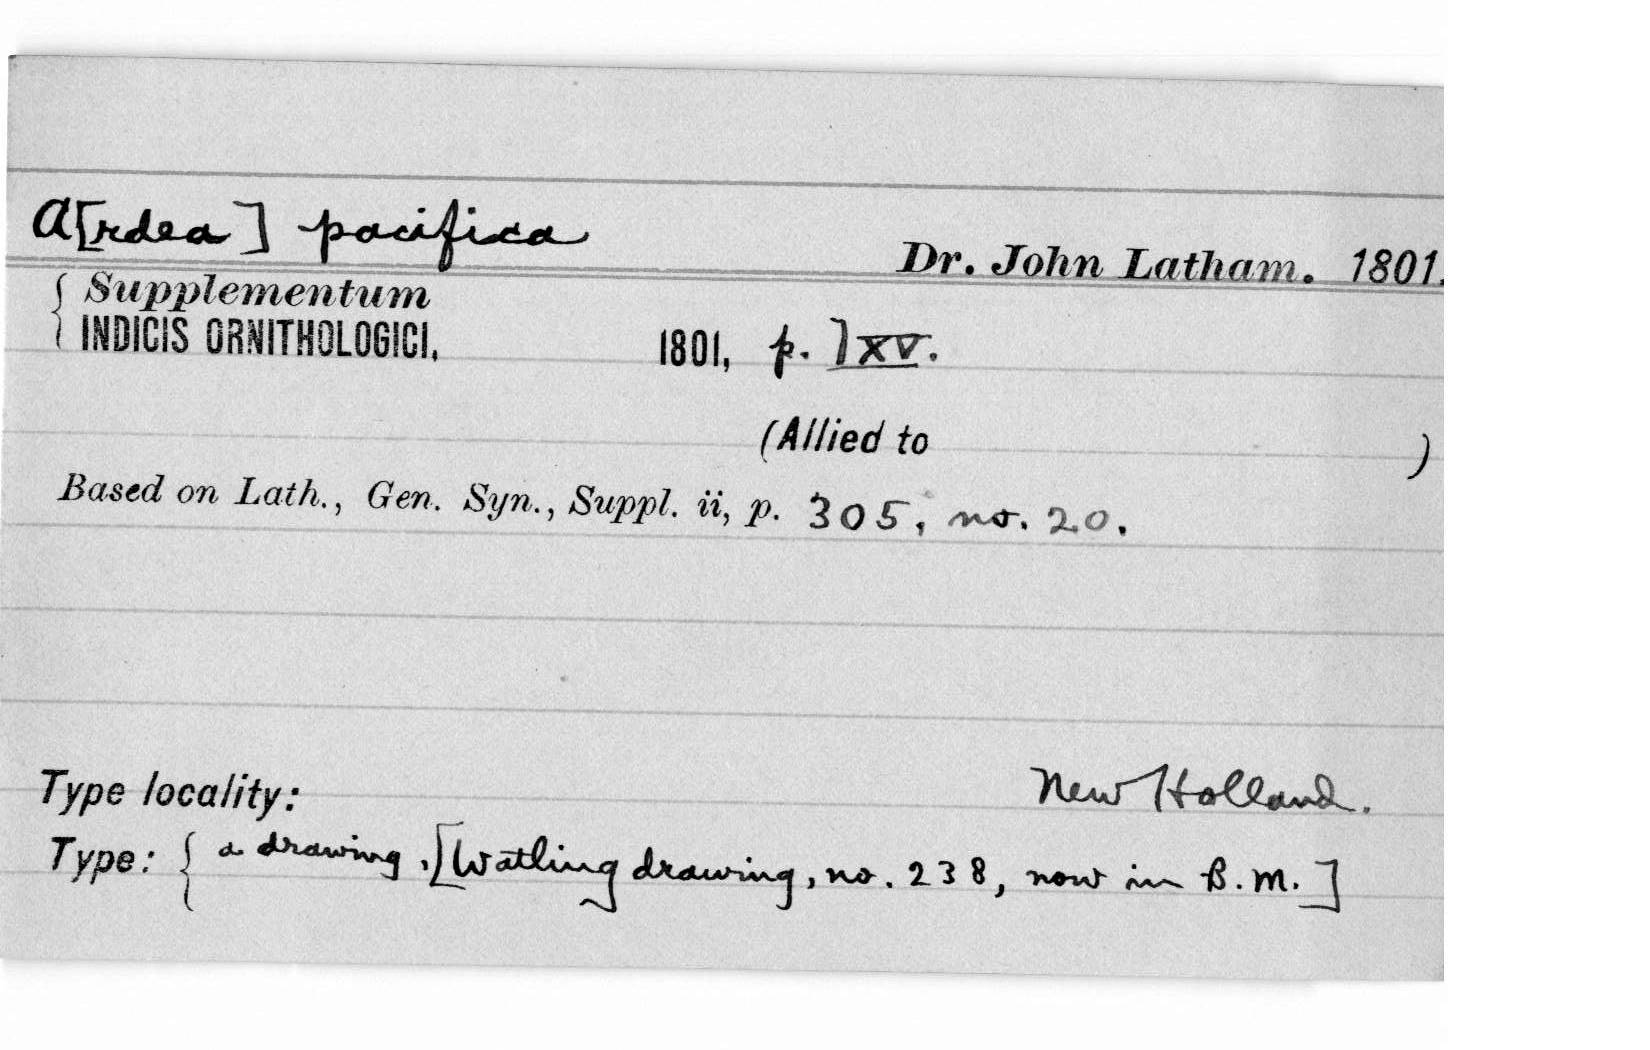 A[rdea] pacifica
Dr. John Latham. 1801.
{ Supplementum
INDICIS ORNITHOLOGICI, 1801, p. lxv.
(Allied to )
Based on Lath., Gen. Syn., Suppl. ii, p. 305, no. 20.
Type locality: New Holland.
Type: { a drawing, [Watling drawing, no. 238, now in B.M.]